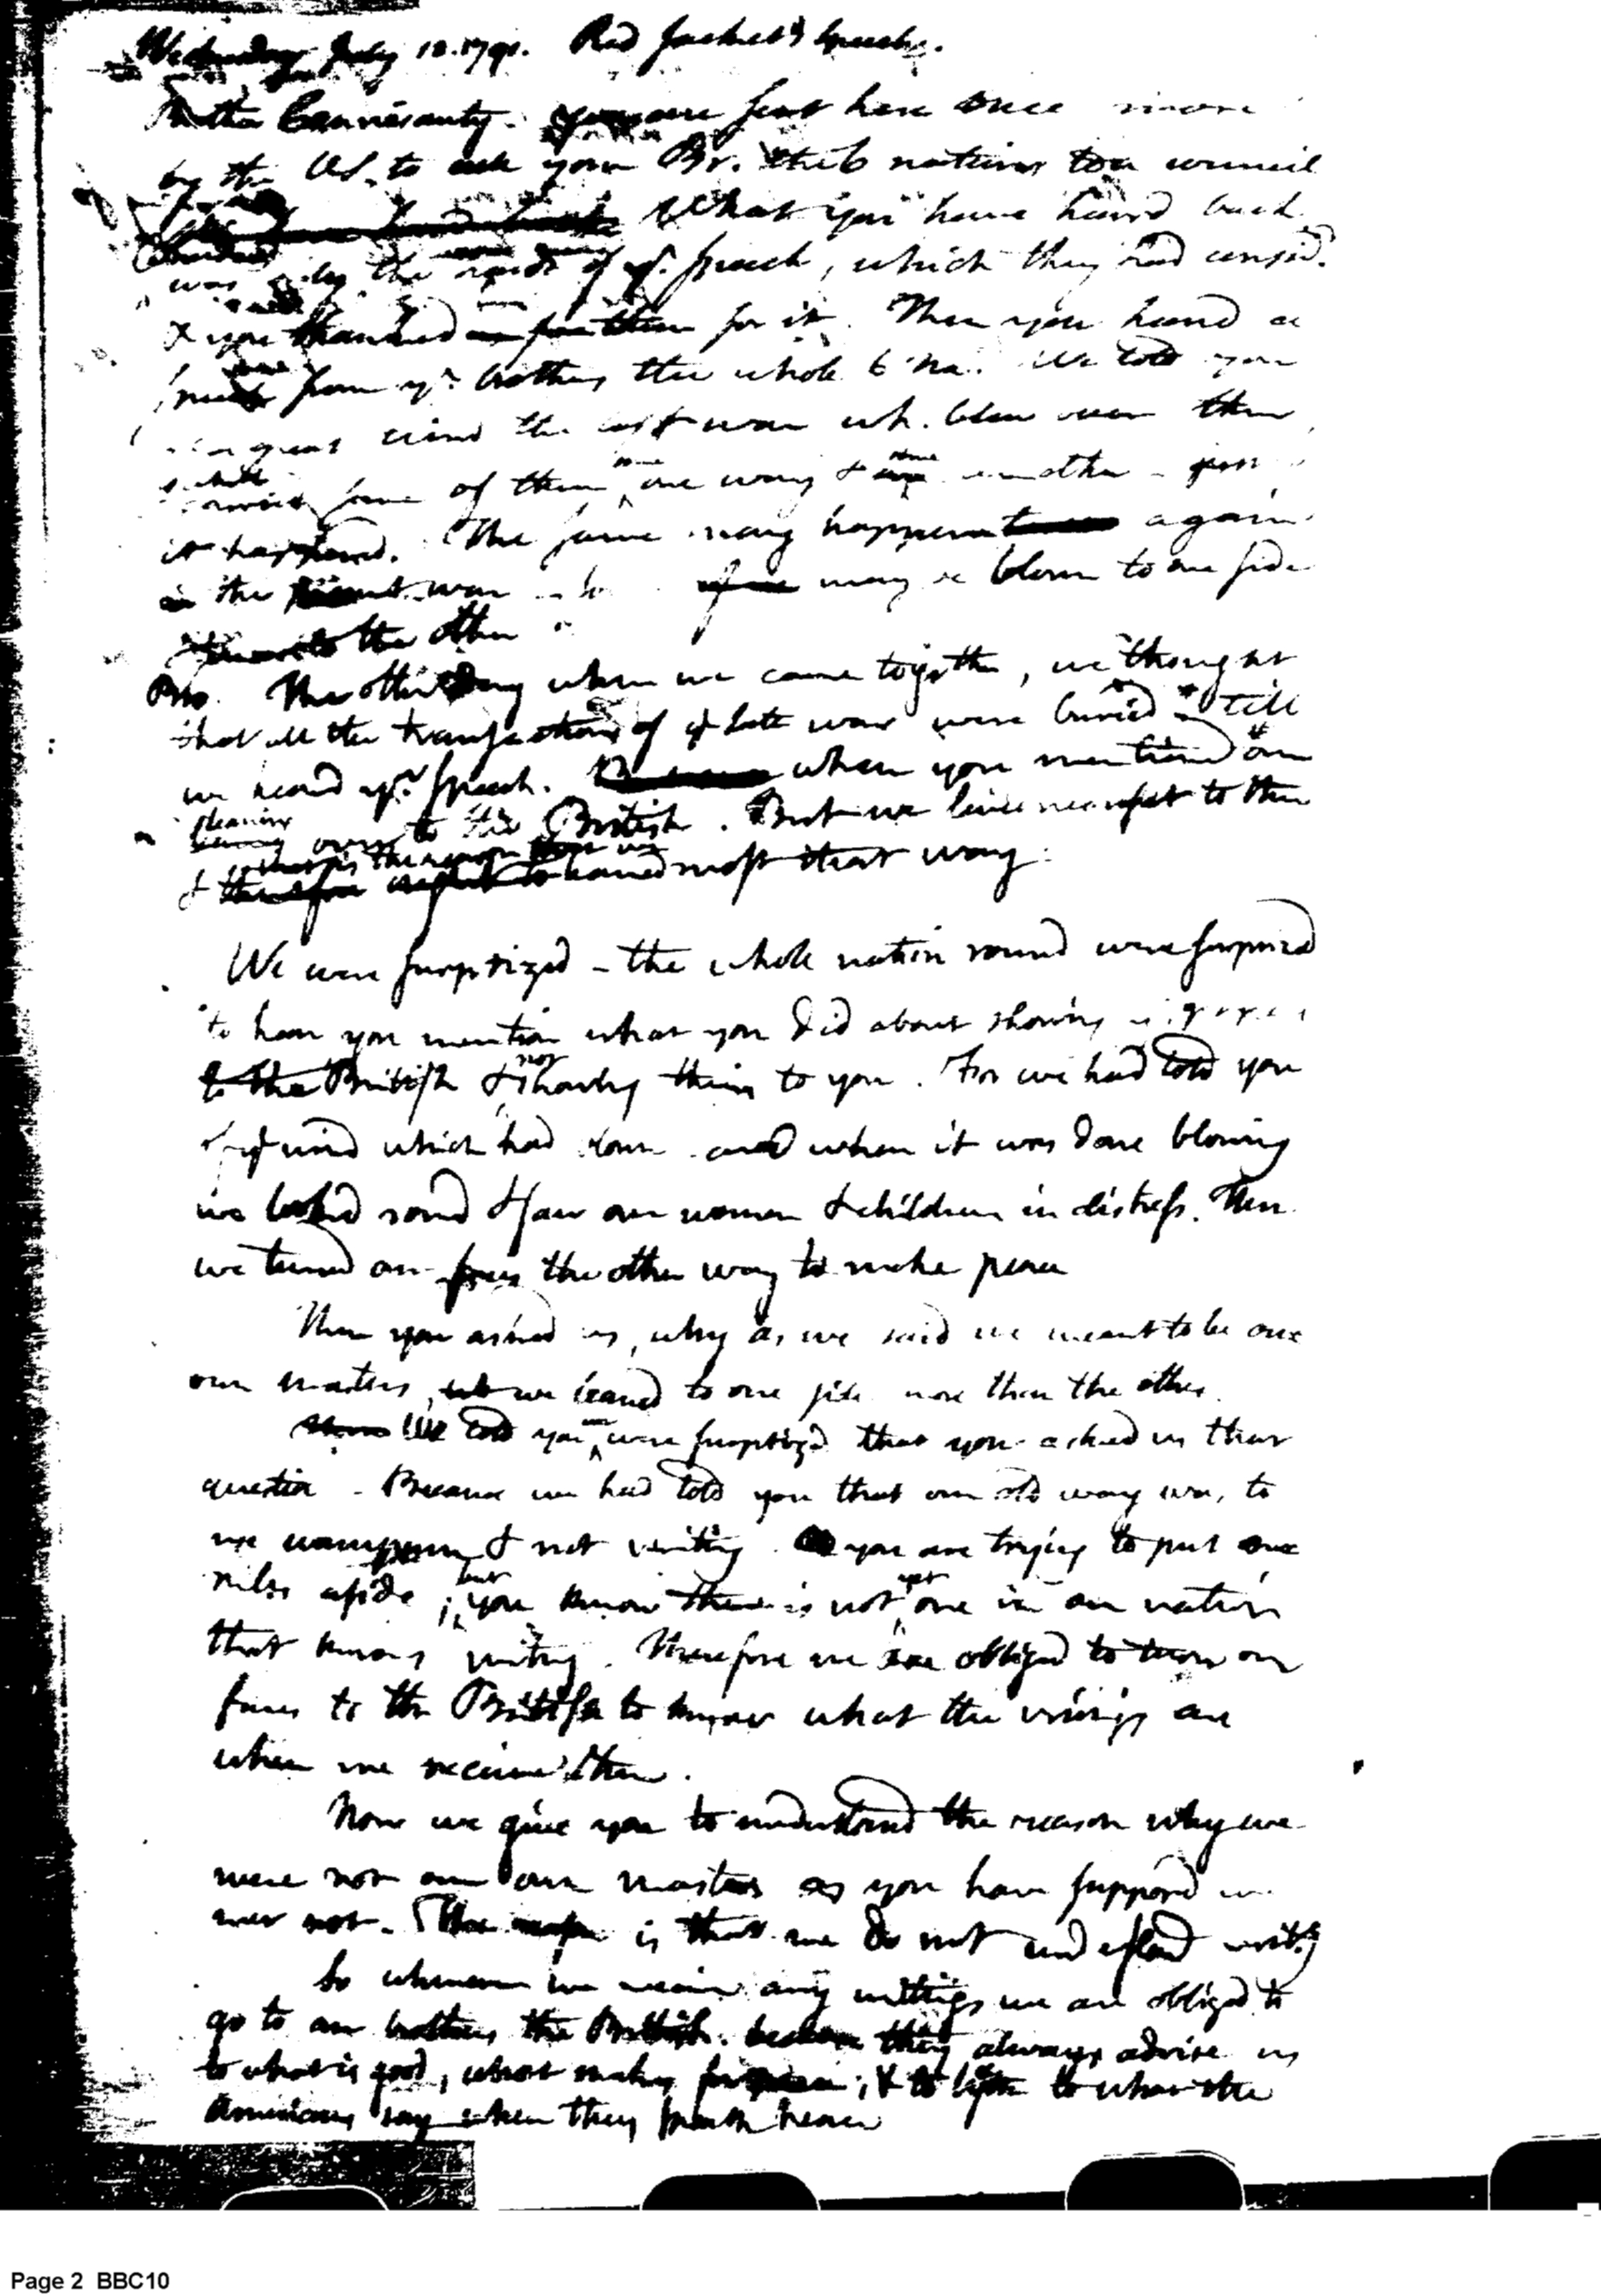 Wednesday July 1791. Red Jacket's Speech.
Brother Connisauty. you are sent here once more
by the US. to ask your Br. the 6 nations to a council
What you have heard back
was by the of yr. speech, which they had consid.
& you thanked for it. Then you heard a
from yr. brothers the whole 6 na. We told you
great wind the last war wh. blew over them
some of them some one way & some another
it happened. The same may happen again
in the present war may be blown to one side
the other
Bro. The other day when we came together, we thought
that all the transactions of ye late war were buried till
we heard yr. speech. when you mentiond our
leaning over to the British. But we live nearest to them
& that is the reason we leaned most that way.
We were surprized - the whole nation round were surprized
to hear you mention what you did about showing
to the British & not showing them to you. For we had told you
of ye wind which had blown and when it was done blowing
we lookd round & saw our women & children in distress. Then
we turned our faces the other way to make peace
Then you asked us, why as we said we meant to be our
own masters, we leaned to one side more than the other.
We told you we were surprized that you asked us that
question - Because we had told you that our old way was, to
use wampum & not writing. you are trying to put our
rules aside; but you know there is not yet one in our nation
that knows writing. Therefore we are obliged to turn our
faces to the British to know what the writings are
when we receive them.
Now we give you to understand the reason why we
were not our own masters as you have supposed we
were not. The is that we do not understand writg
So whenever we receive any writings we are obliged to
go to our brothers the British. they always advise us
to what is good, what makes for peace; & to listen to what the
Americans say when they speak peace